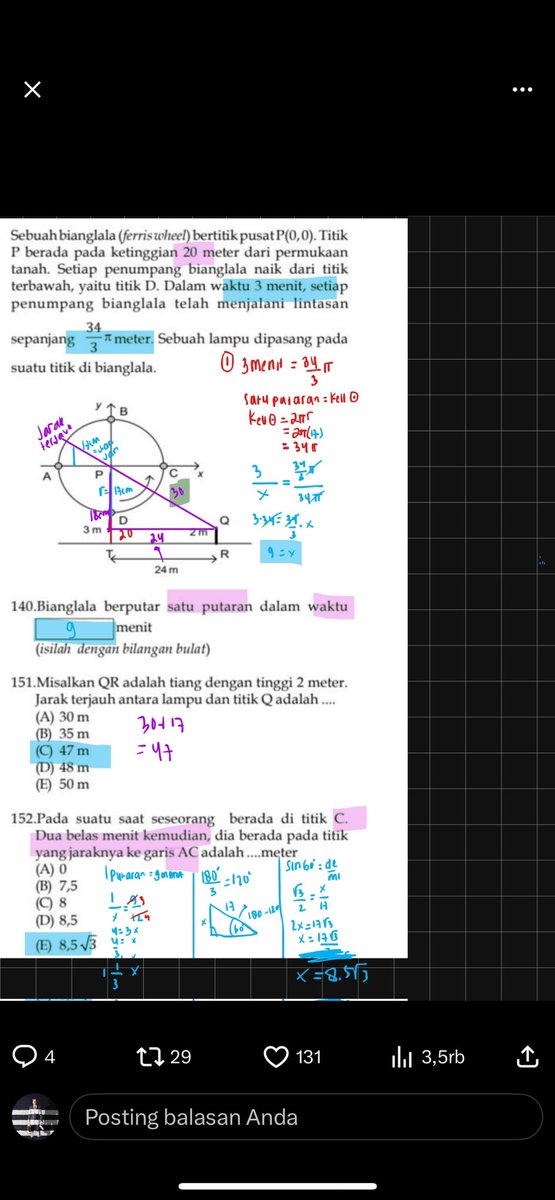 Sebuah bianglala (ferris wheel) bertitik pusat P(0,0). Titik
P berada pada ketinggian 20 meter dari permukaan
tanah. Setiap penumpang bianglala naik dari titik
terbawah, yaitu titik D. Dalam waktu 3 menit, setiap
penumpang bianglala telah menjalani lintasan
sepanjang 34/3 π meter. Sebuah lampu dipasang pada
suatu titik di bianglala.
① 3 menit = 34/3 π
satu putaran = kell ⊙
kell ⊙ = 2πr
= 2π(17)
= 34π
3/x = 34/3 π / 34π
3.34 = 34/3 . x
9 = x
y
B
Jarak
17cm
A
P
C
x
r=17cm
30
D
Q
3 m
20
24
2 m
T
R
24 m
140.Bianglala berputar satu putaran dalam waktu
9 menit
(isilah dengan bilangan bulat)
151.Misalkan QR adalah tiang dengan tinggi 2 meter.
Jarak terjauh antara lampu dan titik Q adalah ....
(A) 30 m
(B) 35 m
(C) 47 m
(D) 48 m
(E) 50 m
30+17
= 47
152.Pada suatu saat seseorang berada di titik C.
Dua belas menit kemudian, dia berada pada titik
yang jaraknya ke garis AC adalah ....meter
(A) 0
(B) 7,5
(C) 8
(D) 8,5
(E) 8,5√3
4=3x
1 1/3 x
17
x
60°
sin 60° = de/mi
√3/2 = x/17
2x = 17√3
x = 17√3/2
x = 8.5√3
4
29
131
3,5rb
Posting balasan Anda